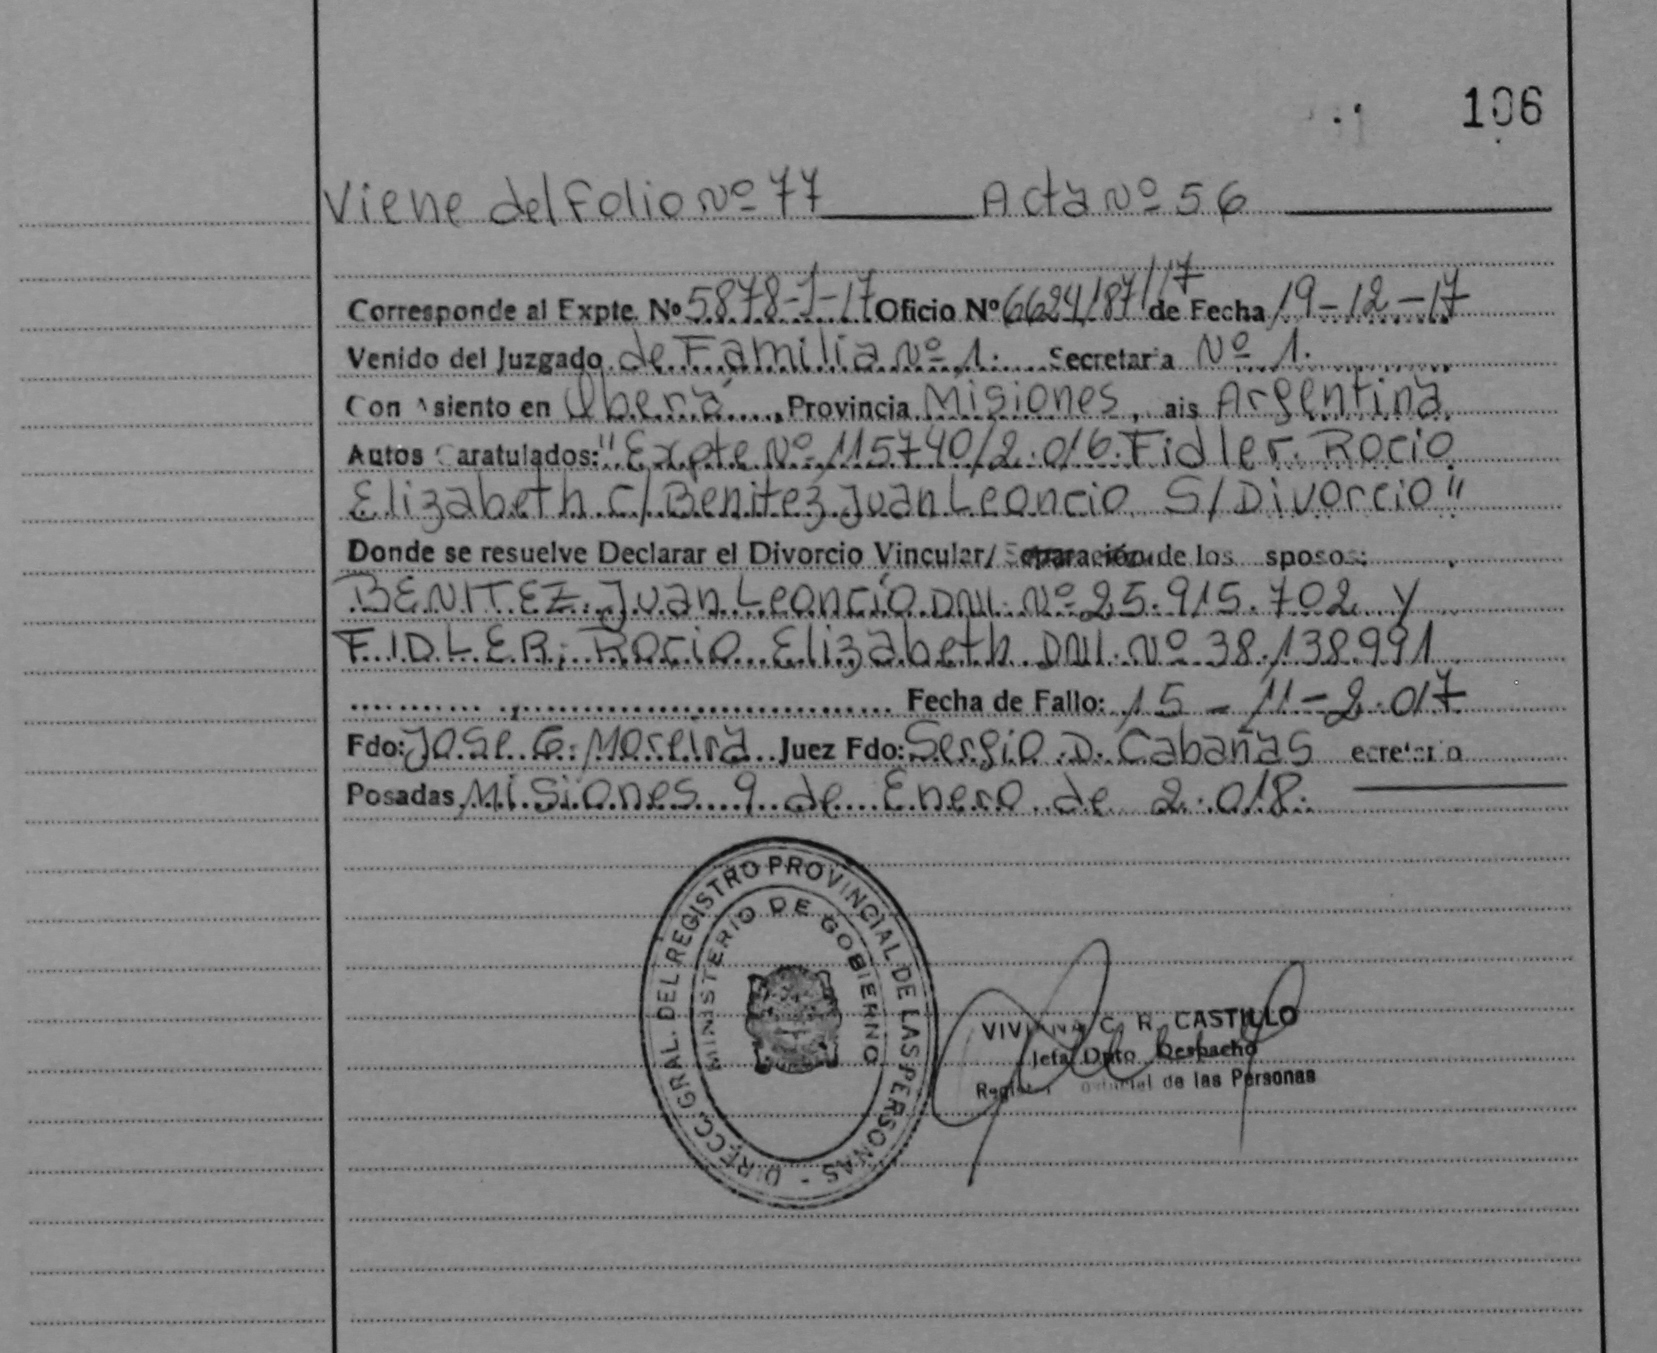 106
Viene del Folio Nº 77 Acta Nº 56
Corresponde al Expte. Nº 5878-J-17 Oficio Nº 6624/87/17 de Fecha 19-12-17
Venido del Juzgado de Familia Nº 1. Secretaria Nº 1.
Con Asiento en Oberá, Provincia Misiones, ais Argentina
Autos Caratulados: "Expte Nº 115740/2.016. Fidler Rocio
Elizabeth C/ Benitez Juan Leoncio S/ Divorcio"
Donde se resuelve Declarar el Divorcio Vincular/ Separación de los sposos:
BENITEZ, Juan Leoncio DNI. Nº 25.915.702 y
FIDLER, Rocio Elizabeth DNI. Nº 38.138.991
Fecha de Fallo: 15-11-2.017
Fdo: Jose G. Moreira Juez Fdo: Sergio D. Cabañas ecretario
Posadas, Misiones 9 de Enero de 2.018.
DIRECC. GRAL. DEL REGISTRO PROVINCIAL DE LAS PERSONAS -
MINISTERIO DE GOBIERNO
VIVIANA C. R. CASTILLO
Jefa Dpto Despacho
de las Personas